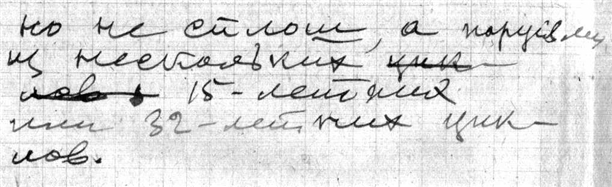 но не сплош, а
из нескольких цик-
лов 15-летних
или 32-летних цик-
лов.